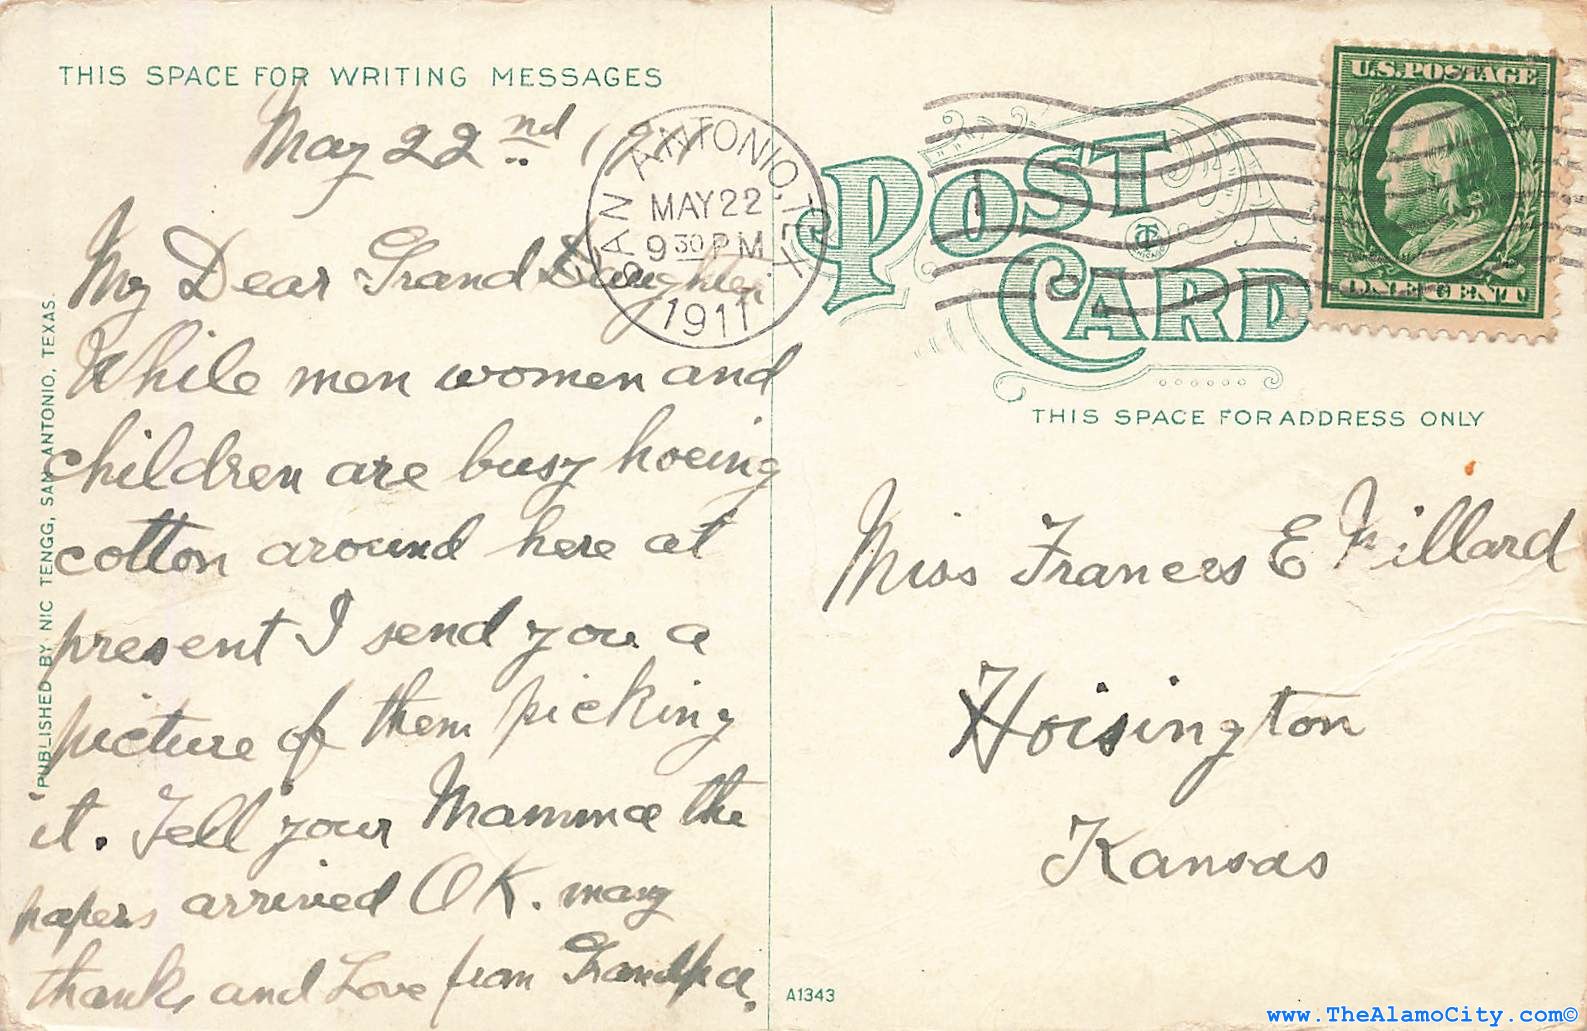 THIS SPACE FOR WRITING MESSAGES
May 22nd 1911
My Dear Grand Daughter
While men women and
children are busy hoeing
cotton around here at
present I send you a
picture of them picking
it. Tell your Mamma the
papers arrived OK. many
thanks and Love from Grandpa.
PUBLISHED BY NIC TENGG, SAN ANTONIO, TEXAS.
SAN ANTONIO, TEX.
MAY 22
9 30 PM
1911
U.S. POSTAGE
ONE CENT
POST
CARD
THIS SPACE FOR ADDRESS ONLY
Miss Frances E Willard
Hoisington
Kansas
A1343
www.TheAlamoCity.com©